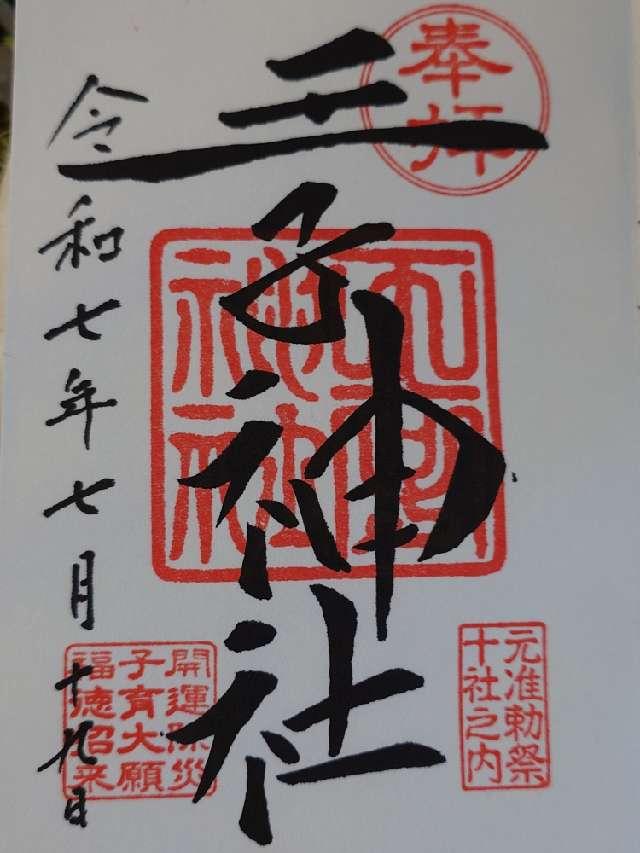 奉拝
王子神社
元准勅祭
十社之内
開運除災
子育大願
福徳招来
令和七年七月十九日